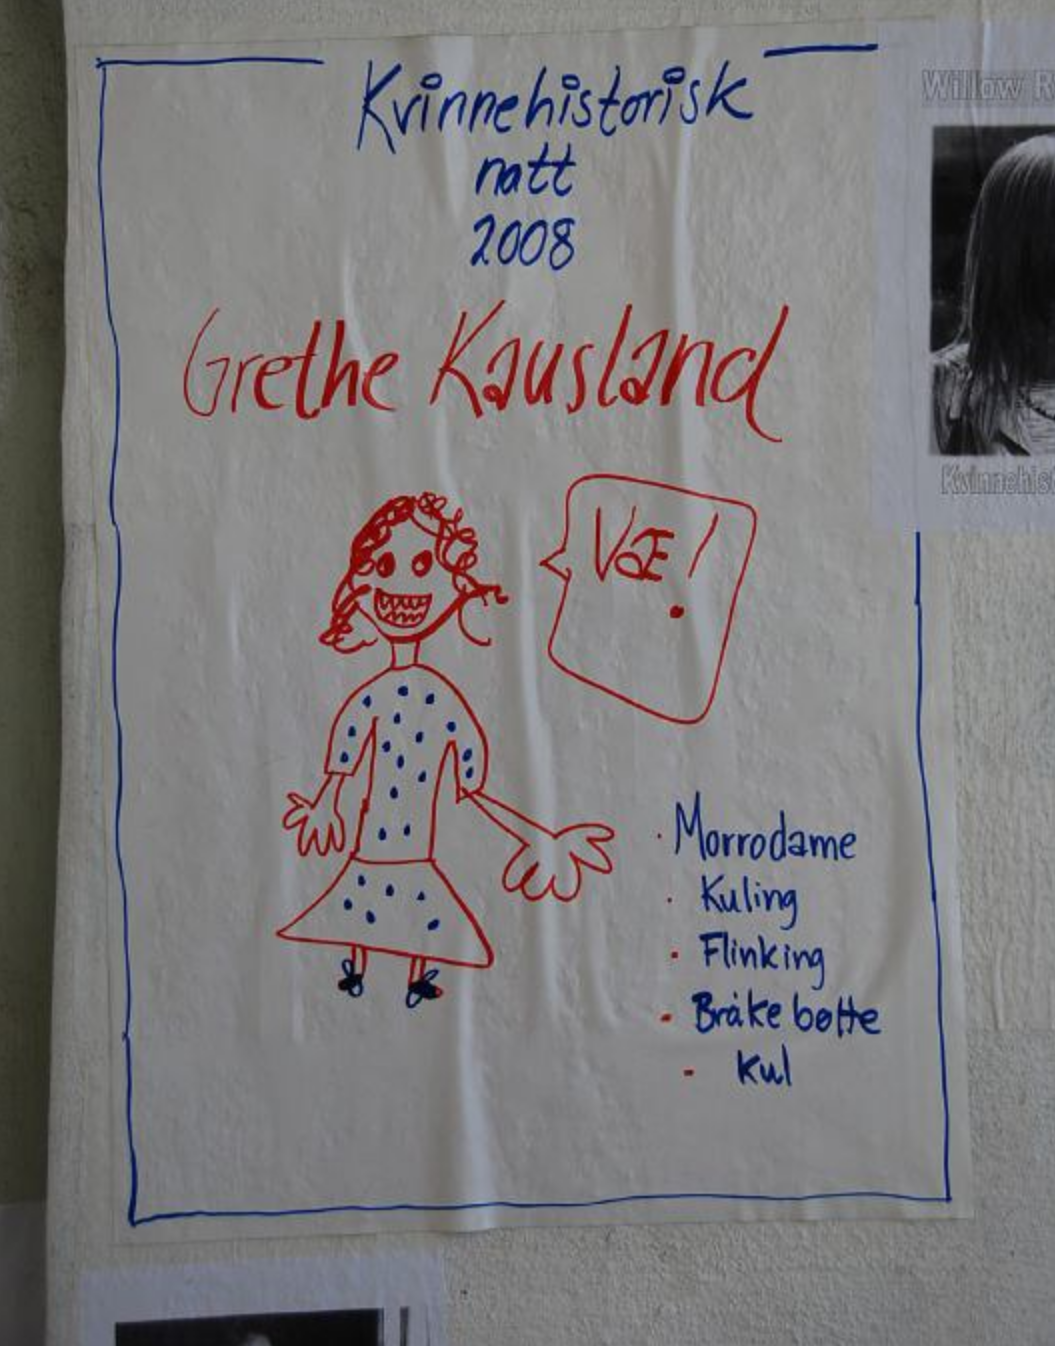 Kvinnehistorisk
natt
2008
Grethe Kausland
Væ!
· Morrodame
· Kuling
· Flinking
· Bråkebøtte
· Kul
Willow R
Kvinnehis